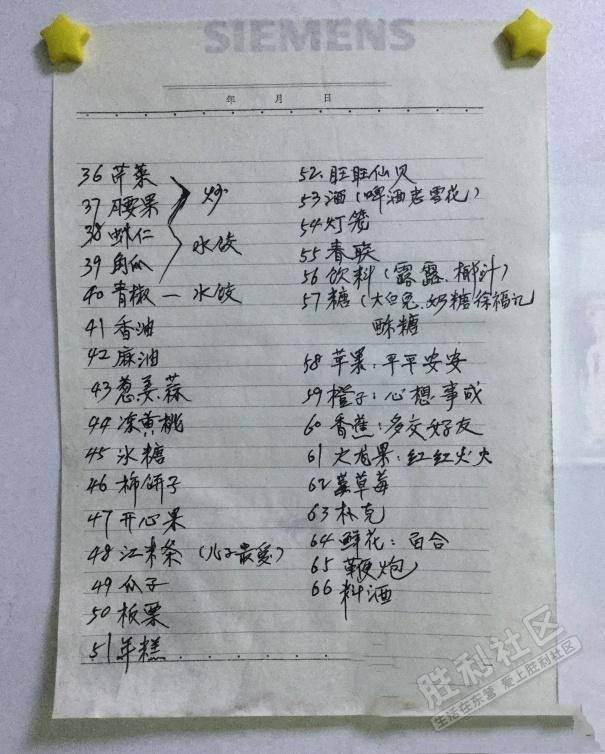 SIEMENS
年 月 日
36 芹菜
37 腰果
炒
38 虾仁
39 角瓜
水饺
40 青椒 — 水饺
41 香油
42 麻油
43 葱姜蒜
44 冻黄桃
45 冰糖
46 柿饼子
47 开心果
48 江米条（儿子最爱）
49 瓜子
50 板栗
51 年糕
52 旺旺仙贝
53 酒（啤酒老雪花）
54 灯笼
55 春联
56 饮料（露露、椰汁）
57 糖（大白兔、奶糖徐福记
酥糖
58 苹果：平平安安
59 橙子：心想事成
60 香蕉：多交好友
61 火龙果：红红火火
62 草莓
63 扑克
64 鲜花：百合
65 鞭炮
66 料酒
胜利社区
生活在东营 爱上胜利社区